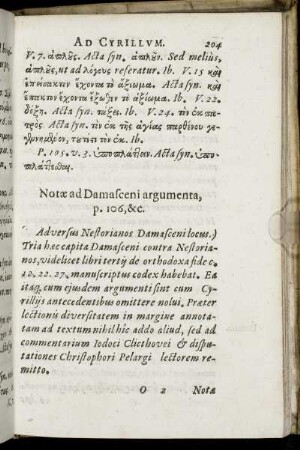 AD CYRILLVM. 204
V. 7. ἁπλῶς. Acta syn. ἁπλοῦν. Sed melius,
ἁπλῶς, ut ad λόγους referatur. Ib. V. 15 καὶ
ἔχοντα τὸ ἀξίωμα. Acta syn. καὶ
ἔχοντα τὸ ἀξίωμα. Ib. V. 22.
δόξῃ. Acta syn. τάξει. Ib. V. 24. τὸν ἐκ πα-
τρὸς Acta syn. τὸν ἐκ τῆς ἁγίας παρθένου γε-
γεννημένον, τουτέστι τὸν ἐκ. Ib.
P. 105. v. 3. Acta syn. ὑπο-
Notæ ad Damasceni argumenta,
p. 106, &c.
Adversus Nestorianos Damasceni locus.)
Tria hec capita Damasceni contra Nestoria-
nos, videlicet libri tertij de orthodoxa fide c.
10. 22. 27. manuscriptus codex habebat. Ea
itaq; cum ejusdem argumenti sint cum Cy-
rillijs antecedentibus omittere nolui, Preter
lectionũ diversitatem in margine annota-
tam ad textum nihil hic addo aliud, sed ad
commentarium Iodoci Clicthovei & dispu-
tationes Christophori Pelargi lectorem re-
mitto.
O 2 Notæ